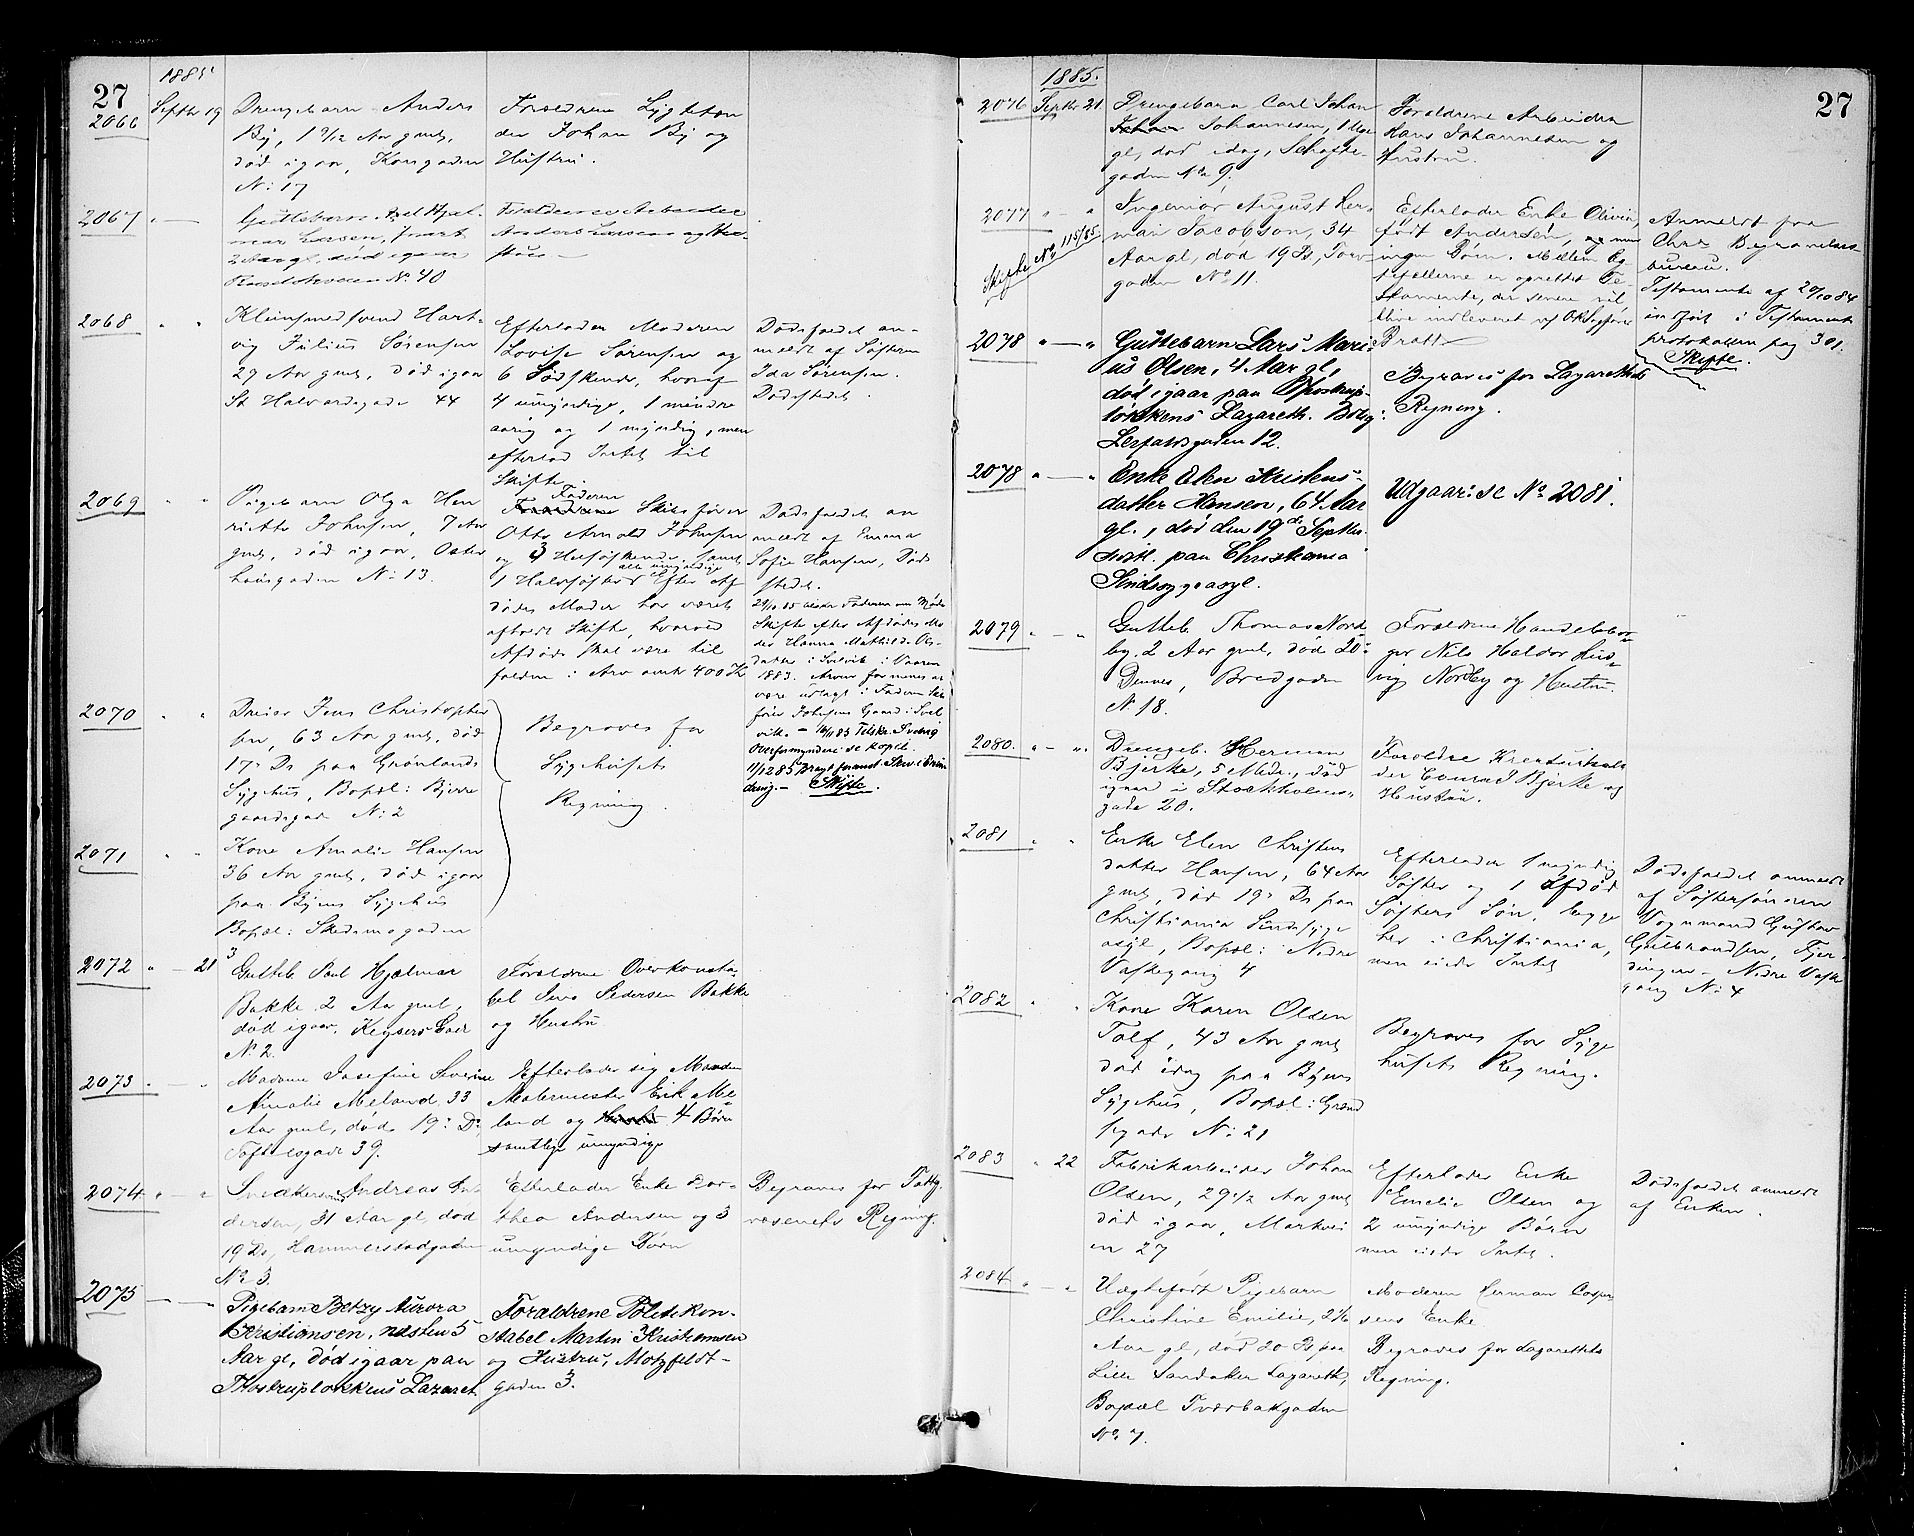 27
1885
2066
Septbr 19
Drengebarn Anders
By, 1 7/12 Aar gml,
død igaar, Kongsgaden
N: 17
Forældrene Lygtetæn
der Johan By og
Hustru.
2067
Guttebarn Axel Hjal-
mar Larsen, snart
2 Aar gl, død igaar
N: 40
Forældrene Arbeider
Anders Larsen og Hu-
stru
2068
Kleinsmedsvend Hart-
vig Julius Sørensen
29 Aar gml, død igaar
St Halvardsgade 44
Efterlader Moderen
Lovise Sørensen og
6 Sødskende, hvoraf
4 umyndige, 1 mindre
aarig og 1 myndig, men
efterlod Intet til
Skifte.
Dødsfaldet an-
meldt af Søsteren
Ida Sørensen.
Dødsstedet.
2069
Pigebarn Olga Hen
riette Johnsen, 7 Aar
gml, død igaar, Oster
hausgaden N: 13.
Faderen
Forældrene Skibsfører
Otto Arnold Johnsen
og 3 Helsøskende, samt
alle umyndige
1 Halvsøster Efter Af
dødes Moder har været
afholdt Skifte, hvorved
Afdøde skal være til
falden i Arv omtr 400 Kr
Dødsfaldet an
meldt af Emma
Sofie Hansen, Døds
stedet.
Skifte efter Afdødes Mo
der Hanna Mathilde Ols-
datter i Svelvik i Vaaren
1883. Arven formenes at
være udlagt i Faderen Skibs
fører Johnsens Gaard i Svel
vik.
Overformynderi se Kopib.
Skifte.
2070
Dreier Jens Christopher
sen, 63 Aar gml, død
17: Ds paa Grønlands
Sygehus, Bopæl: Bjerre
gaardsgad N: 2
Begraves for
Sygehusets
Regning.
2071
Kone Amalie Hansen
36 Aar gml, død igaar
paa Byens Sygehus
Bopæl: Skedsmogaden
3
2072
21
Gutteb Paul Hjalmar
Bakke 2 Aar gml,
død igaar, Keysers Gade
N: 2.
Forældrene Overkonsta-
bel Iver Pedersen Bakke
og Hustru
2073
Madame Josefine Severine
Amalie Meland, 33
Aar gml, død 19: Ds,
Toftesgade 39.
Efterlader sig Manden
Malermester Erik Me-
land og 4 Børn
samtlige umyndige
2074
Snedkersvend Andreas An
dersen, 31 Aar gl, død
19 Ds, Hammerstadgaden
No 3.
Efterlader Enke Dor-
thea Andersen og 3
umyndige Børn
Begraves for Fattig
væsenets Regning.
2075
Pigebarn Betzy Aurora
Kristiansen, næsten 5
Aar gl, død igaar paa
Thostrupløkkens Lazaret
Forældrene Politikon-
stabel Martin Kristiansen
og Hustru, Motzfeldt-
gaden 3.
27
1885.
2076
Septbr 21
Drengebarn Carl Johan
Johannesen, 1 Uge
gl, død idag, Schofte-
gaden No 9.
Forældrene Arbeider
Hans Johannesen og
Hustru.
2077
Skifte No 115/85.
Ingeniør August Her-
man Jacobson, 34
Aar gl, død 19 Ds, Torv-
gaden No 11.
Efterlader Enke Olivia,
født Andersen, og men
ingen Børn. Mellem Æg
tefællerne er oprettet Te-
stamente, der senere vil
blive indleveret af Oksagfører
Bratt
Anmeldt fra
Chra Begravelses
bureau.
Testamente af 20/10 84
indført i Testament
protokollen pag 301.
Skifte.
2078
Guttebarn Lars Mari-
us Olsen, 4 Aar gl,
død igaar paa Thostrup-
løkkens Lazareth. Bolig:
Lerfaldsgaden 12.
Begraves for Lazarethets
Regning.
2078
Enke Elen Kristens-
datter Hansen, 64 Aar
gl., død den 19de Septbr
sidstl. paa Christiania
Sindssygeasyl.
Udgaar: se No 2081.
2079
Gutteb. Thomas Nord-
by, 2 Aar gml, død 20:
Dennes, Bredgaden
N: 18.
Forældrene Handelsbor-
ger Nils Haldor Lud-
vig Nordby og Hustru.
2080.
Drengeb. Herman
Bjerke, 5 Mdr., død
igaar i Stockholms-
gade 20.
Forældre
der Conrad Bjerke og
Hustru.
2081
Enke Elen Christens
datter Hansen, 64 Aar
gml, død 19: Ds paa
Christiania Sindssyge
asyl, Bopæl: Nedre
Vaskegang 4
Efterlader 1 myndig
Søster og 1 Afdød
Søsters Søn, begge
her i Christiania,
men eiede Intet
Dødsfaldet anmeldt
af Søstersønnen
Vognmand Gustav
Gulbrandsen, Fjer-
dingen - Nedre Vaske
gang N: 4
2082
Kone Karen Olsen
Tolf, 43 Aar gml
død idag paa Byens
Sygehus, Bopæl: Grønd
sgade N: 21
Begraves for Syge
husets Regning.
2083
22
Fabrikarbeider Johan
Olsen, 29 1/2 Aar gml
død igaar, Markvei
en 27
Efterlader Enke
Emelie Olsen og
2 umyndige Børn
men eiede Intet.
Dødsfaldet anmeldt
af Enken.
2084
Uægtefødt Pigebarn
Christine Emilie, 2 1/6
Aar gl, død 20 Ds paa
Lille Sandaker Lazareth,
Bopæl Tværbakgaden
No 7.
Moderen Herman Casper
sens Enke.
Begraves for Lazarethets
Regning.